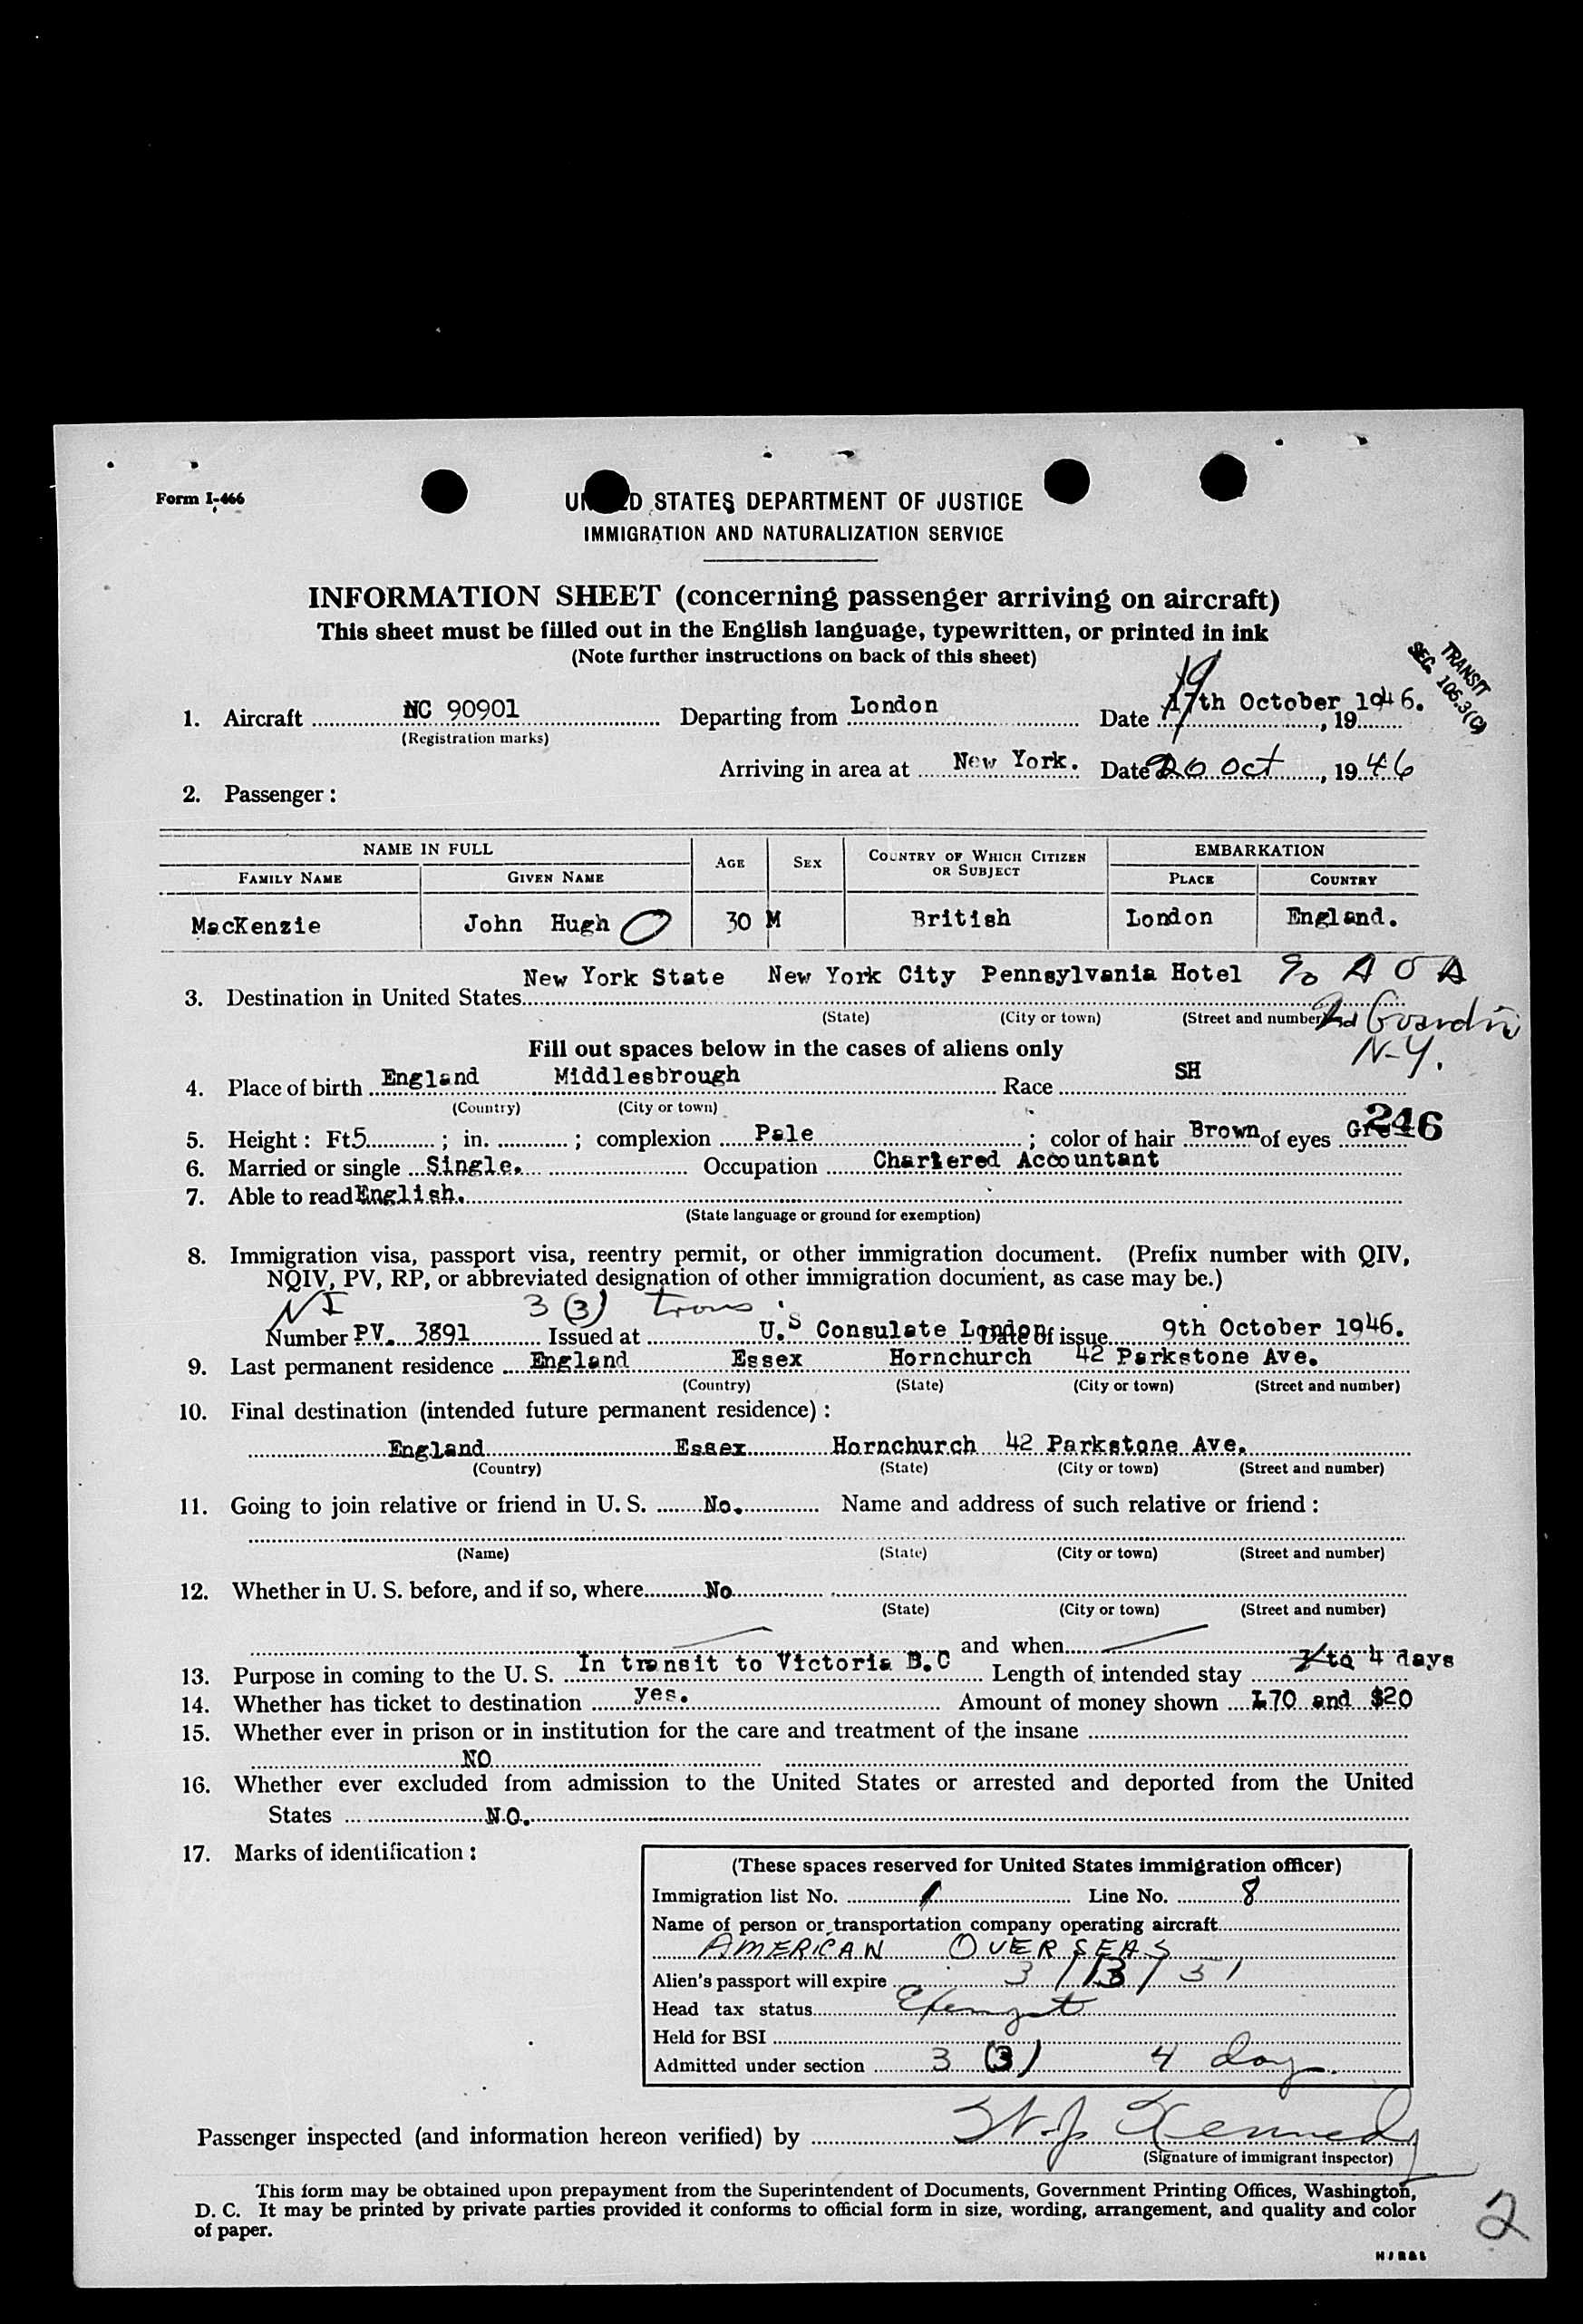 Form I-466
UNITED STATES DEPARTMENT OF JUSTICE
IMMIGRATION AND NATURALIZATION SERVICE
INFORMATION SHEET (concerning passenger arriving on aircraft)
This sheet must be filled out in the English language, typewritten, or printed in ink
(Note further instructions on back of this sheet)
TRANSIT
SEC. 105.3(C)
19
1. Aircraft NC 90901 Departing from London Date 17th October 1946. , 19
(Registration marks)
Arriving in area at New York. Date 20 Oct , 1946
2. Passenger :
NAME IN FULL AGE SEX COUNTRY OF WHICH CITIZEN OR SUBJECT EMBARKATION
FAMILY NAME GIVEN NAME PLACE COUNTRY
MacKenzie John Hugh 30 M British London England.
New York State New York City Pennsylvania Hotel c/o A O A
3. Destination in United States
(State) (City or town) (Street and number)
N-Y.
Fill out spaces below in the cases of aliens only
4. Place of birth England Middlesbrough Race SH
(Country) (City or town)
246
5. Height : Ft 5 ; in. ; complexion Pale ; color of hair Brown of eyes
6. Married or single Single. Occupation Chartered Accountant
7. Able to read English.
(State language or ground for exemption)
8. Immigration visa, passport visa, reentry permit, or other immigration document. (Prefix number with QIV,
NQIV, PV, RP, or abbreviated designation of other immigration document, as case may be.)
NI 3 (3) trans
Number PV. 3891 Issued at U.S Consulate London Date of issue 9th October 1946.
9. Last permanent residence England Essex Hornchurch 42 Parkstone Ave.
(Country) (State) (City or town) (Street and number)
10. Final destination (intended future permanent residence) :
England Essex Hornchurch 42 Parkstone Ave.
(Country) (State) (City or town) (Street and number)
11. Going to join relative or friend in U. S. No. Name and address of such relative or friend :
(Name) (State) (City or town) (Street and number)
12. Whether in U. S. before, and if so, where No
(State) (City or town) (Street and number)
and when
13. Purpose in coming to the U. S. In transit to Victoria B.C Length of intended stay 3 to 4 days
14. Whether has ticket to destination yes. Amount of money shown £70 and $20
15. Whether ever in prison or in institution for the care and treatment of the insane
NO
16. Whether ever excluded from admission to the United States or arrested and deported from the United
States N.O.
17. Marks of identification :
(These spaces reserved for United States immigration officer)
Immigration list No. 1 Line No. 8
Name of person or transportation company operating aircraft
AMERICAN OVERSEAS
Alien's passport will expire 3/13/51
Head tax status Exempt
Held for BSI
Admitted under section 3 (3) 4 day
Passenger inspected (and information hereon verified) by Kennedy
(Signature of immigrant inspector)
This form may be obtained upon prepayment from the Superintendent of Documents, Government Printing Offices, Washington,
D. C. It may be printed by private parties provided it conforms to official form in size, wording, arrangement, and quality and color
of paper.
2